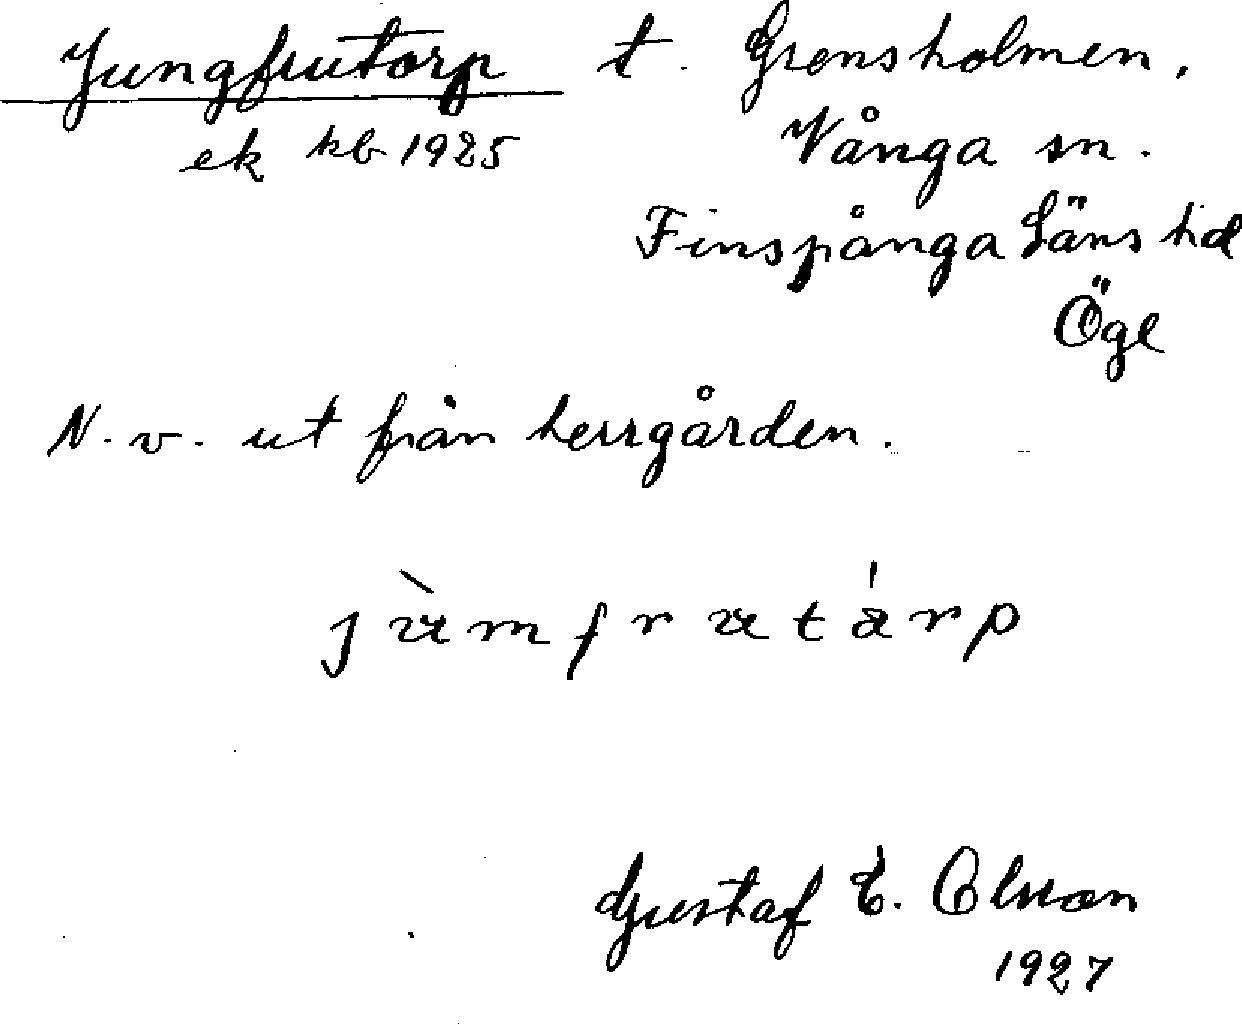 Jungfrutorp t. Grensholmen,
ek kb 1925 Vånga sn.
Finspånga Läns hd
Ögl
N. v. ut från herrgården.
jùmfrutárp
Gustaf E. Olsson
1927